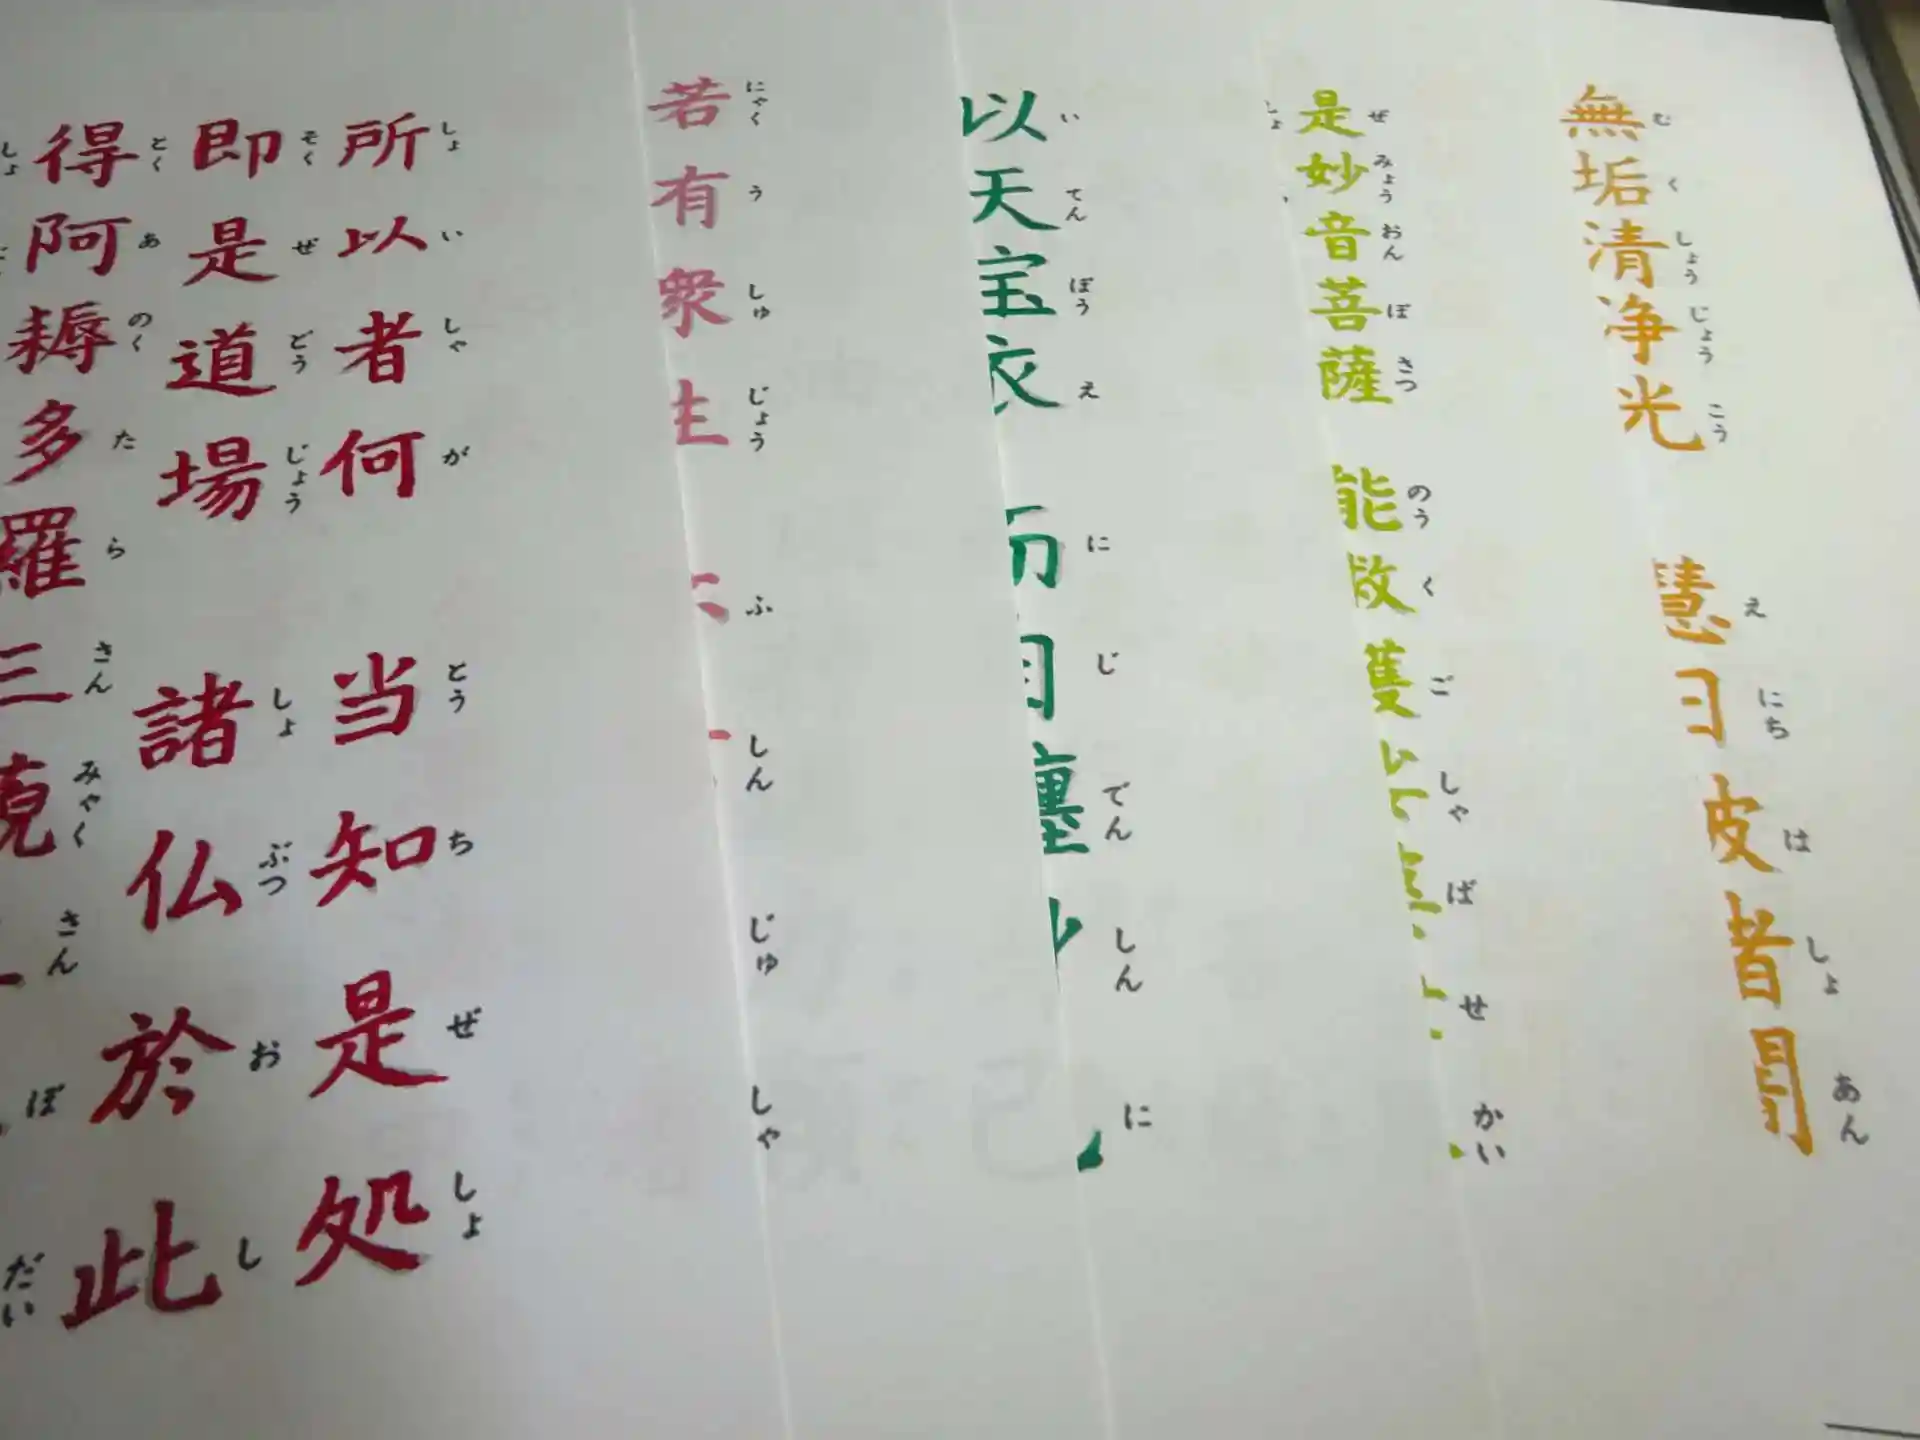 無垢清浄光 慧日
むくしょうじょうこう えにちはしょあん
是妙音菩薩 能
ぜみょうおんぼさつ のうくごしゃばせかい
以天宝衣 而
いてんぽうえ にじでんしんに
若有衆生
にゃくうしゅじょう ふしんじゅしゃ
所以者何 当知是処
しょいしゃが とうちぜしょ
即是道場 諸仏於此
そくぜどうじょう しょぶつおし
得阿耨多羅三
とくあのくたらさんみゃくさんぼだい